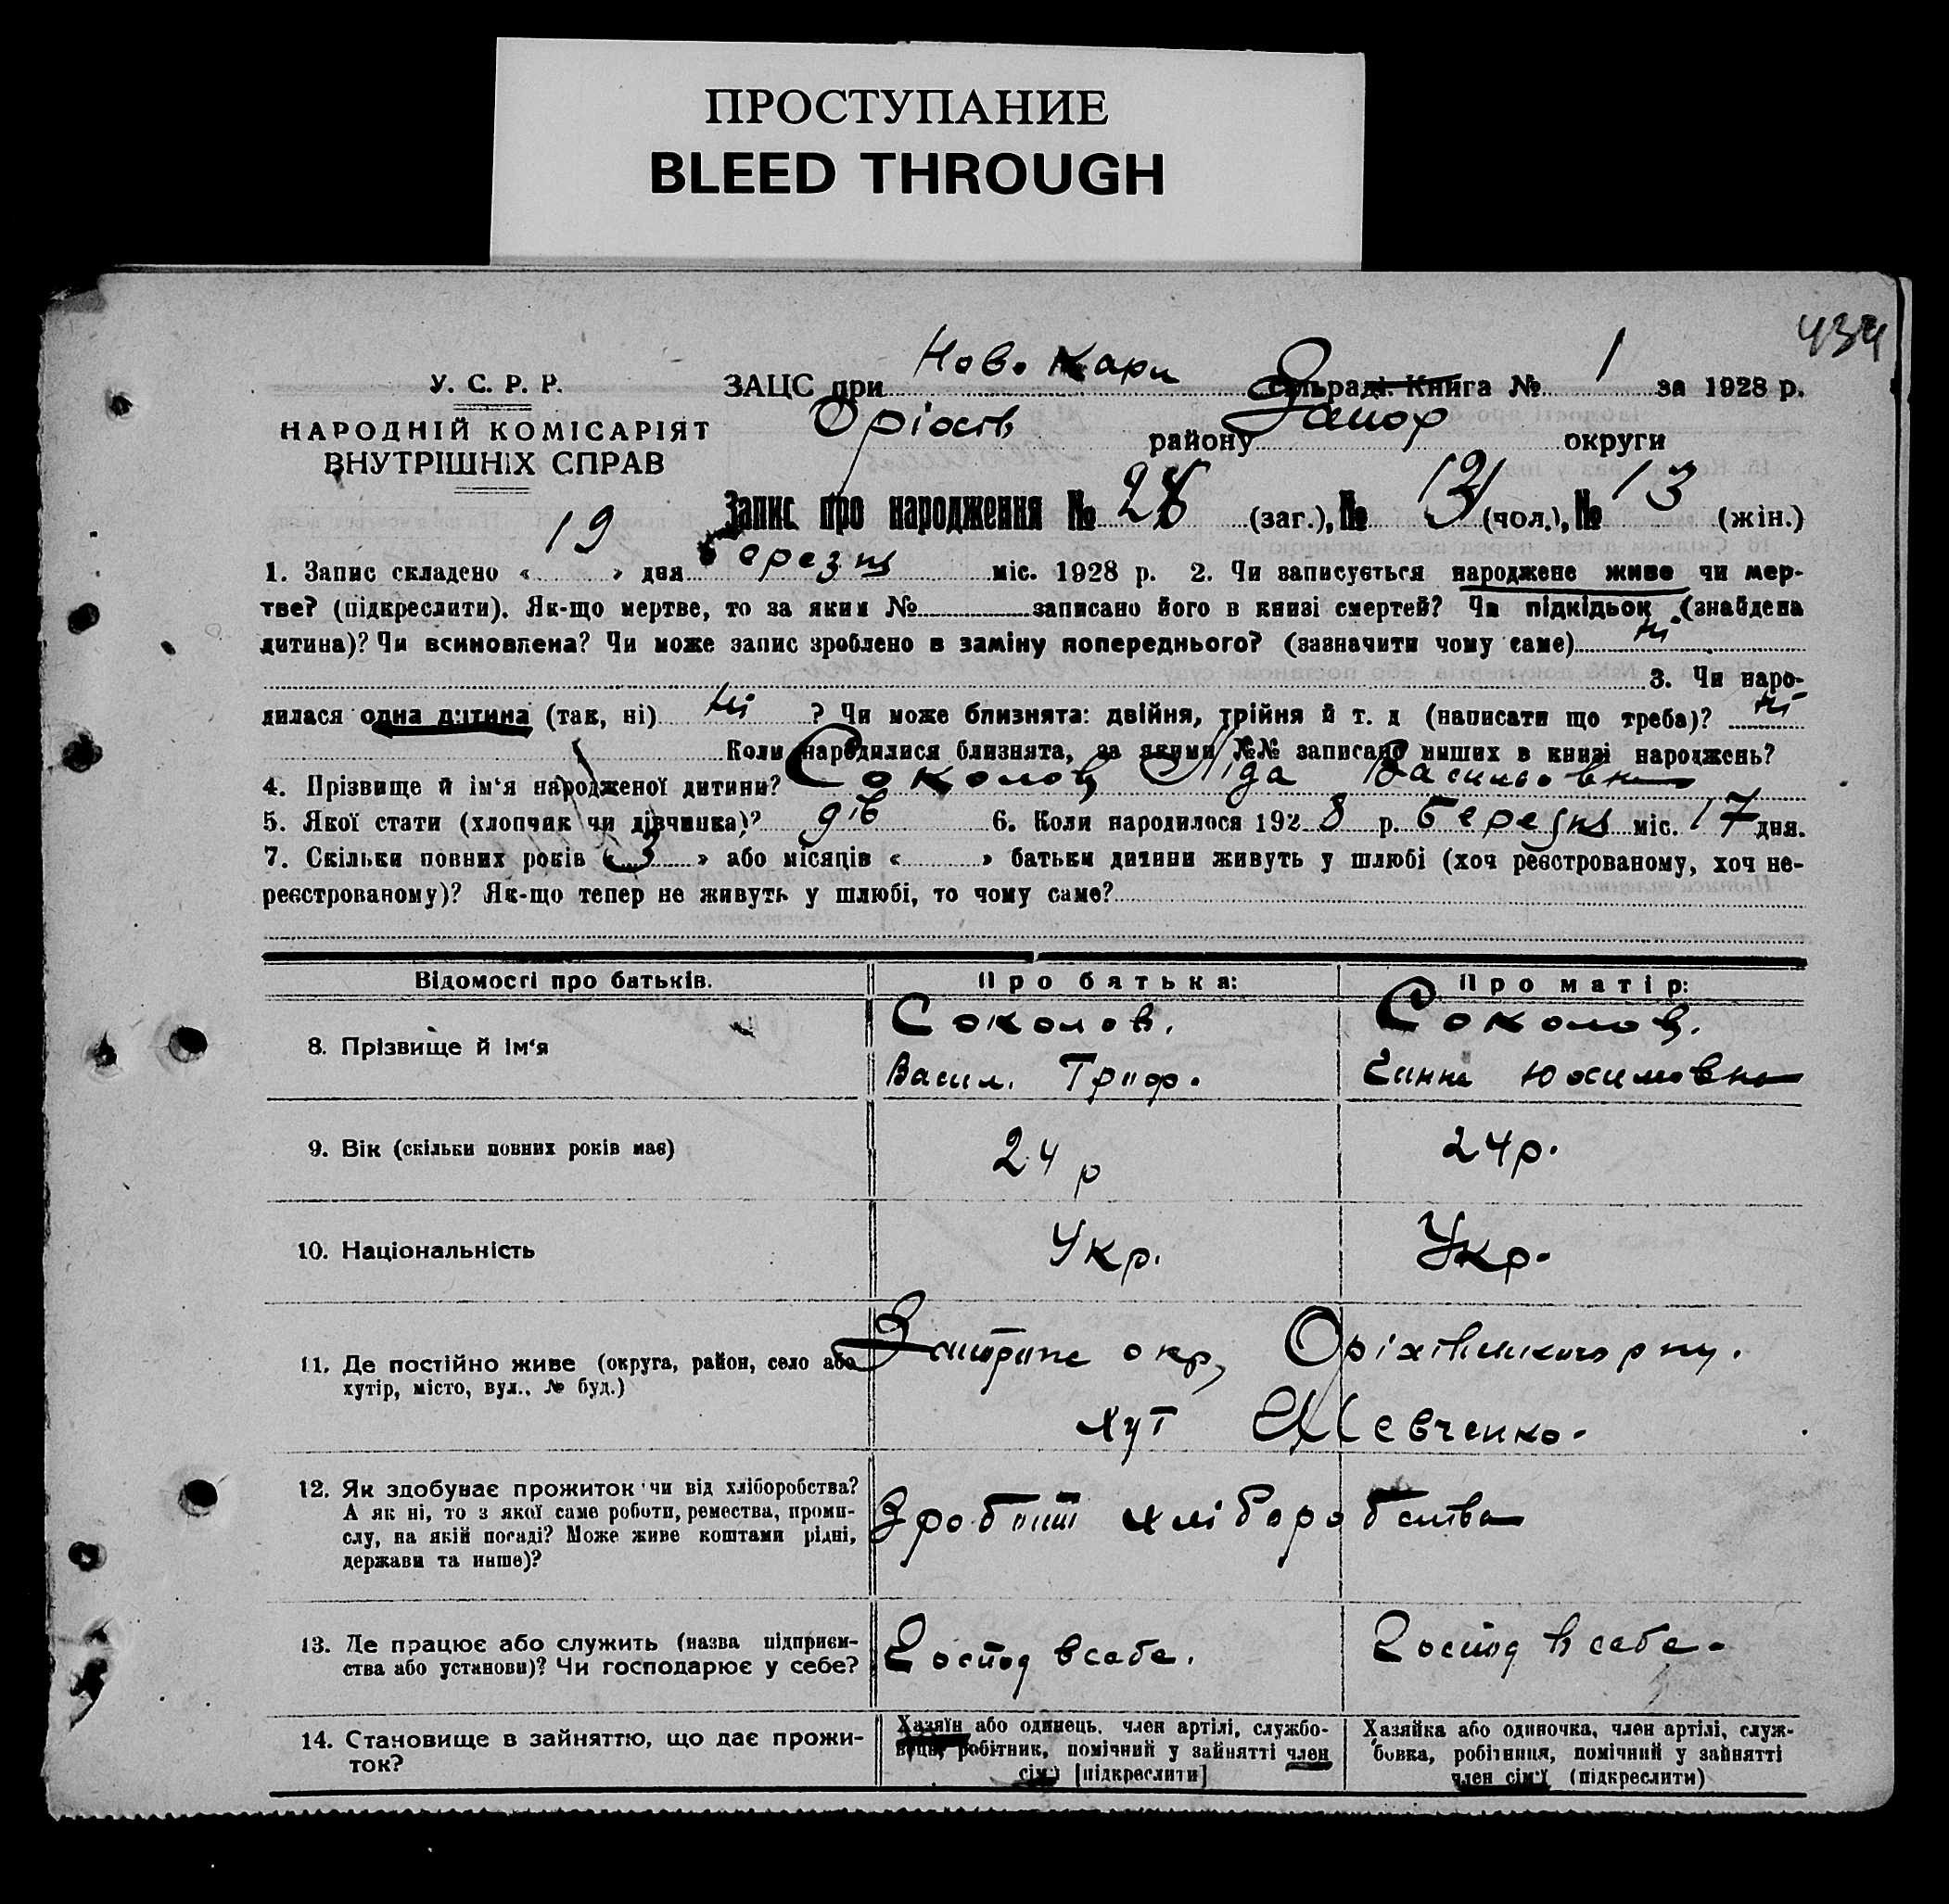 ПРОСТУПАНИЕ
BLEED THROUGH
434
У. С. Р. Р.
НАРОДНІЙ КОМІСАРІЯТ
ВНУТРІШНІХ СПРАВ
ЗАЦС при Ново Кари сільраді. Книга № 1 за 1928 р.
Оріхів району Запор округи
Запис про народження № 28 (заг.), № (чол.), № 13 (жін.)
1. Запис складено « 19 » дня березня міс. 1928 р. 2. Чи записується народжене живе чи мер-
тве? (підкреслити). Як-що мертве, то за яким № записано його в книзі смертей? Чи підкідьок (знайдена
дитина)? Чи всиновлена? Чи може запис зроблено в заміну попереднього? (зазначити чому саме) ні
3. Чи наро-
дилася одна дитина (так, ні) ні ? Чи може близнята: двійня, трійня й т. д (написати що треба)? ні
Коли народилися близнята, за якими №№ записано инших в книзі народжень?
4. Прізвище й ім'я народженої дитини? Соколов Ліда Васильовна
5. Якої стати (хлопчик чи дівчинка)? дів 6. Коли народилося 192 8 р. березня міс. 17 дня.
7. Скільки повних років « 3 » або місяців « » батьки дитини живуть у шлюбі (хоч реєстрованому, хоч не-
реєстрованому)? Як-що тепер не живуть у шлюбі, то чому саме?
Відомості про батьків. Про батька: Про матір:
8. Прізвище й ім'я Соколов. Соколов.
Васил. Триф. Ганна Юхимовна
9. Вік (скільки повних років має) 24 р 24 р.
10. Національність Укр. Укр.
11. Де постійно живе (округа, район, село або
хутір, місто, вул., № буд.)
окр, Оріхівського р ну.
хут Шевченко.
12. Як здобуває прожиток чи від хліборобства?
А як ні, то з якої саме роботи, ремества, проми-
слу, на якій посаді? Може живе коштами рідні,
держави та инше)?
З робіт хліборобства
13. Де працює або служить (назва підприєм-
ства або установи)? Чи господарює у себе?
Господ в себе. Господ в себе.
14. Становище в зайняттю, що дає прожи-
ток?
Хазяїн або одинець, член артілі, службо-
вець, робітник, помічний у зайнятті член
сім'ї [підкреслити]
Хазяйка або одиночка, член артілі, служ-
бовка, робітниця, помічний у зайнятті
член сім'ї (підкреслити)